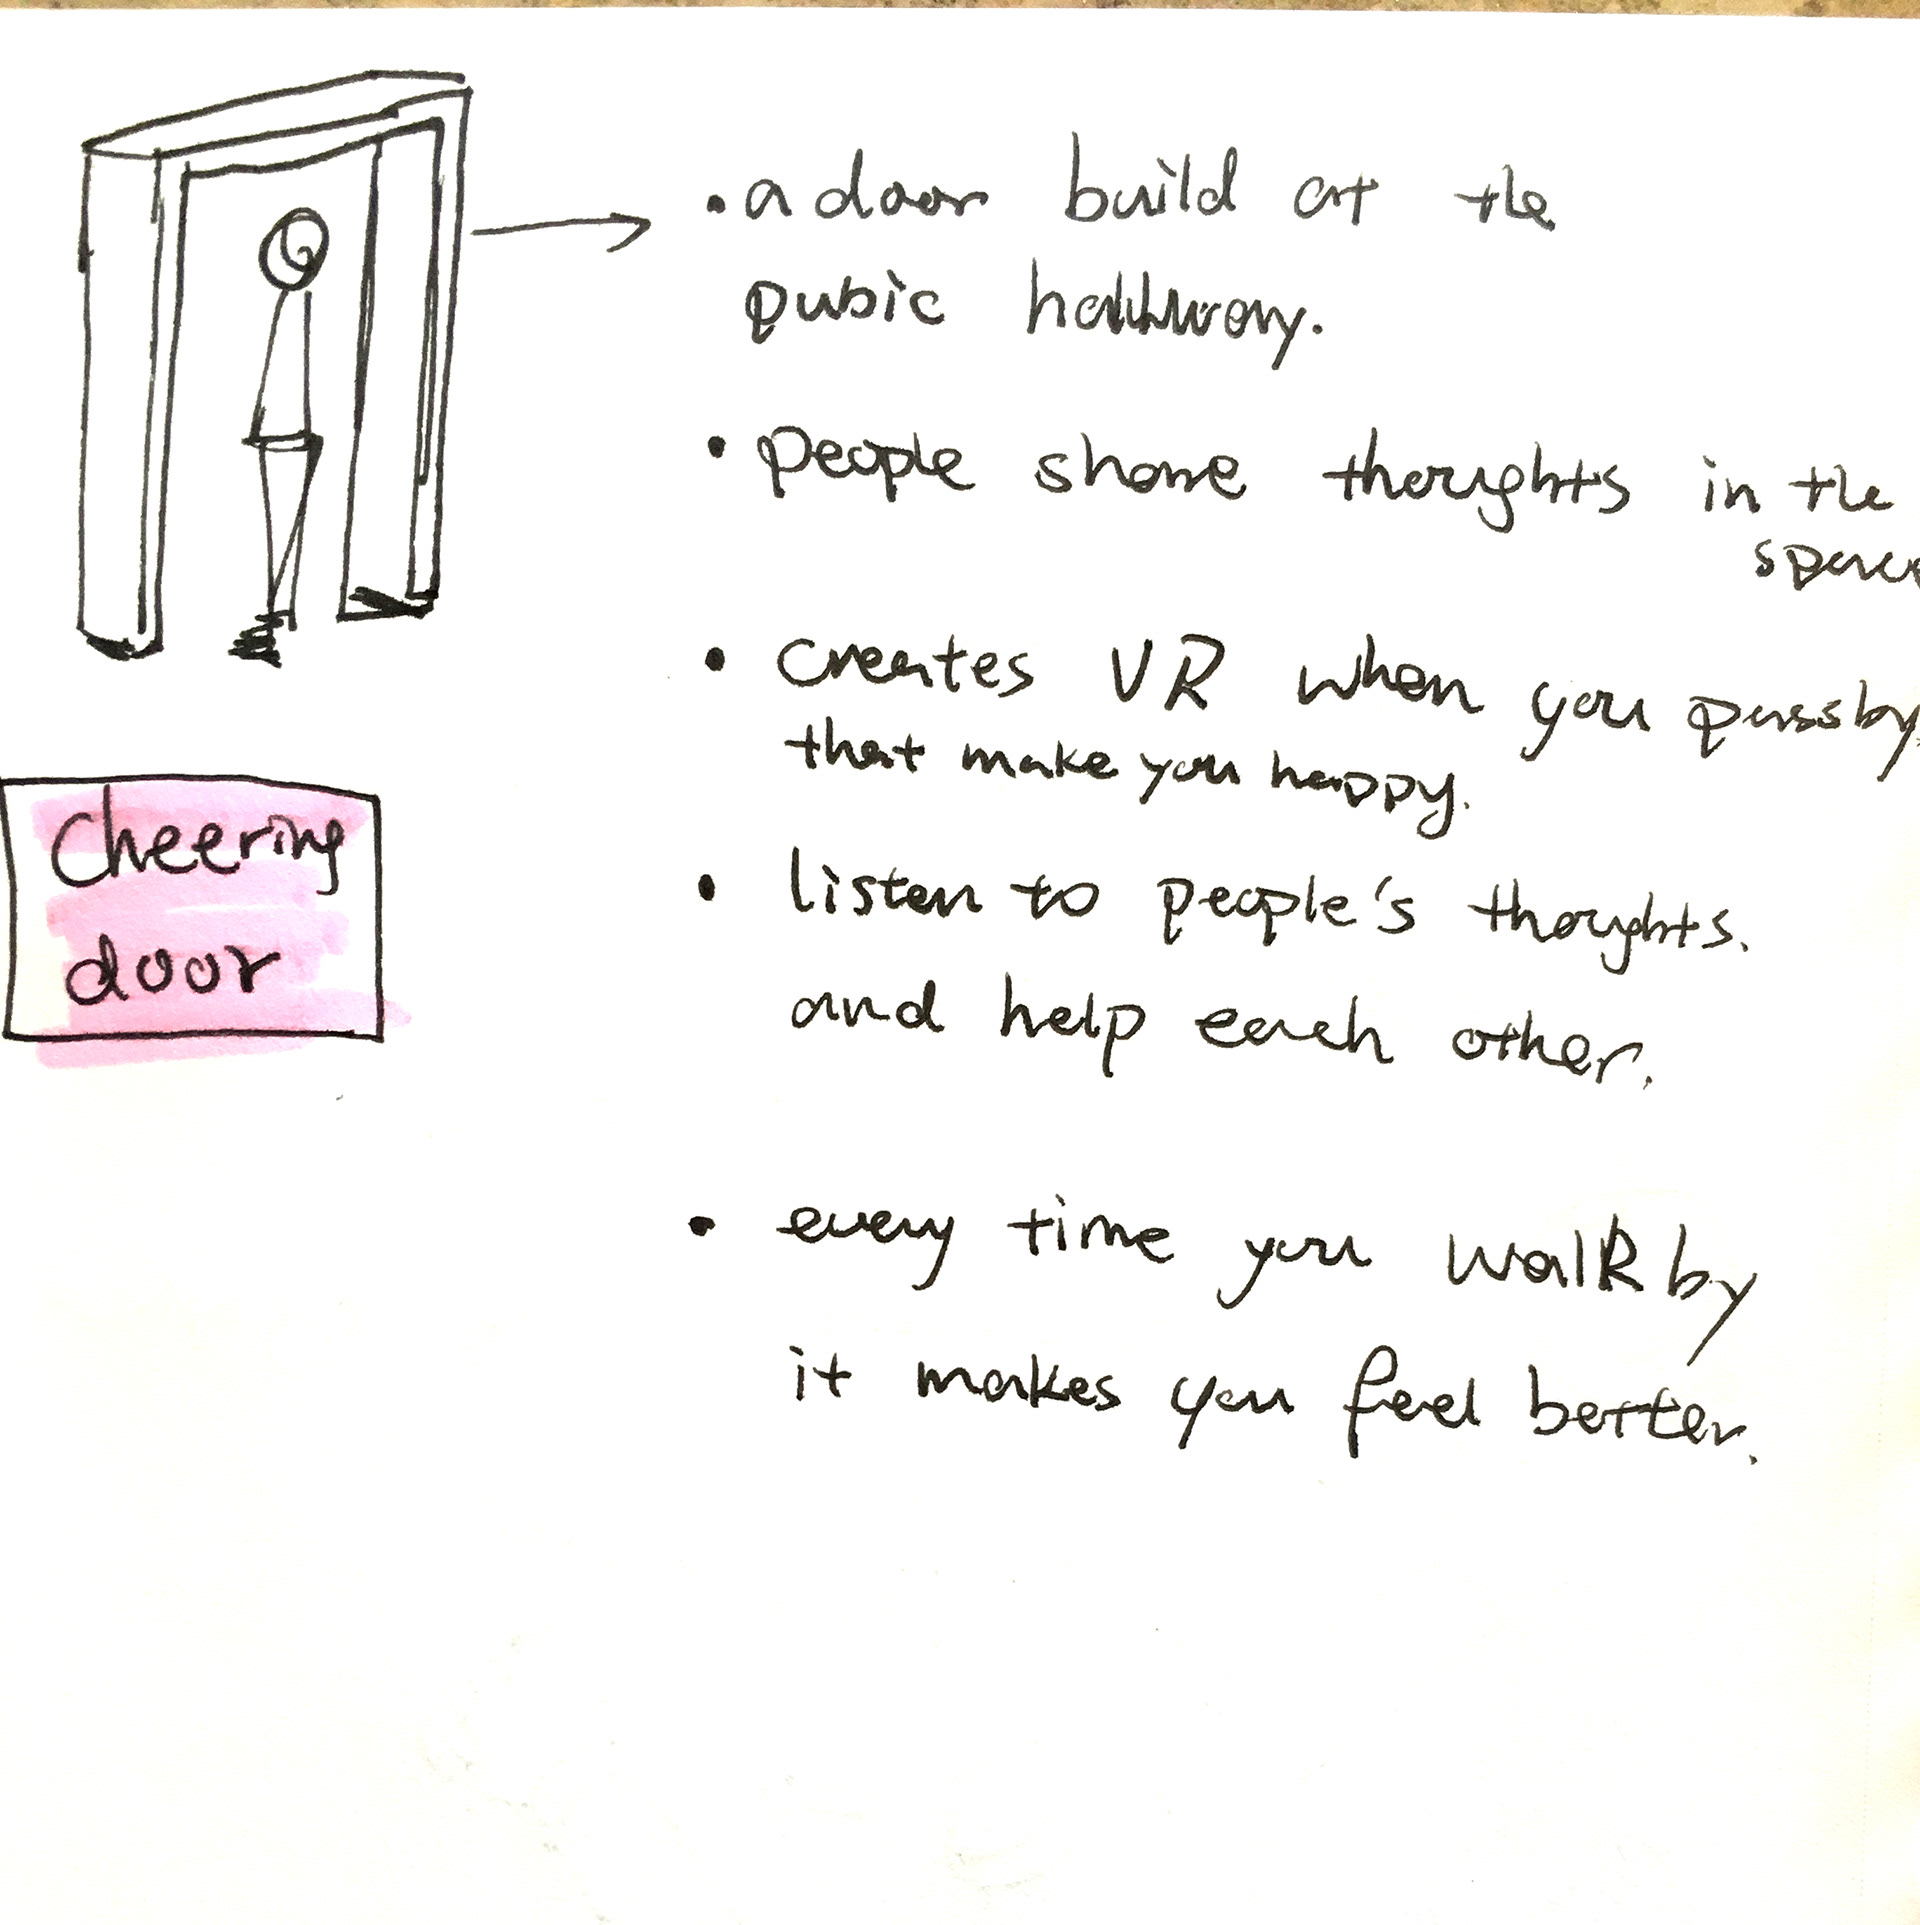 • a door build at the
pubic hallway.
• people share thoughts in the
space
• creates VR when you pass by
that make you happy.
• listen to people's thoughts.
and help each other.
• every time you walk by
it makes you feel better.
Cheering
door